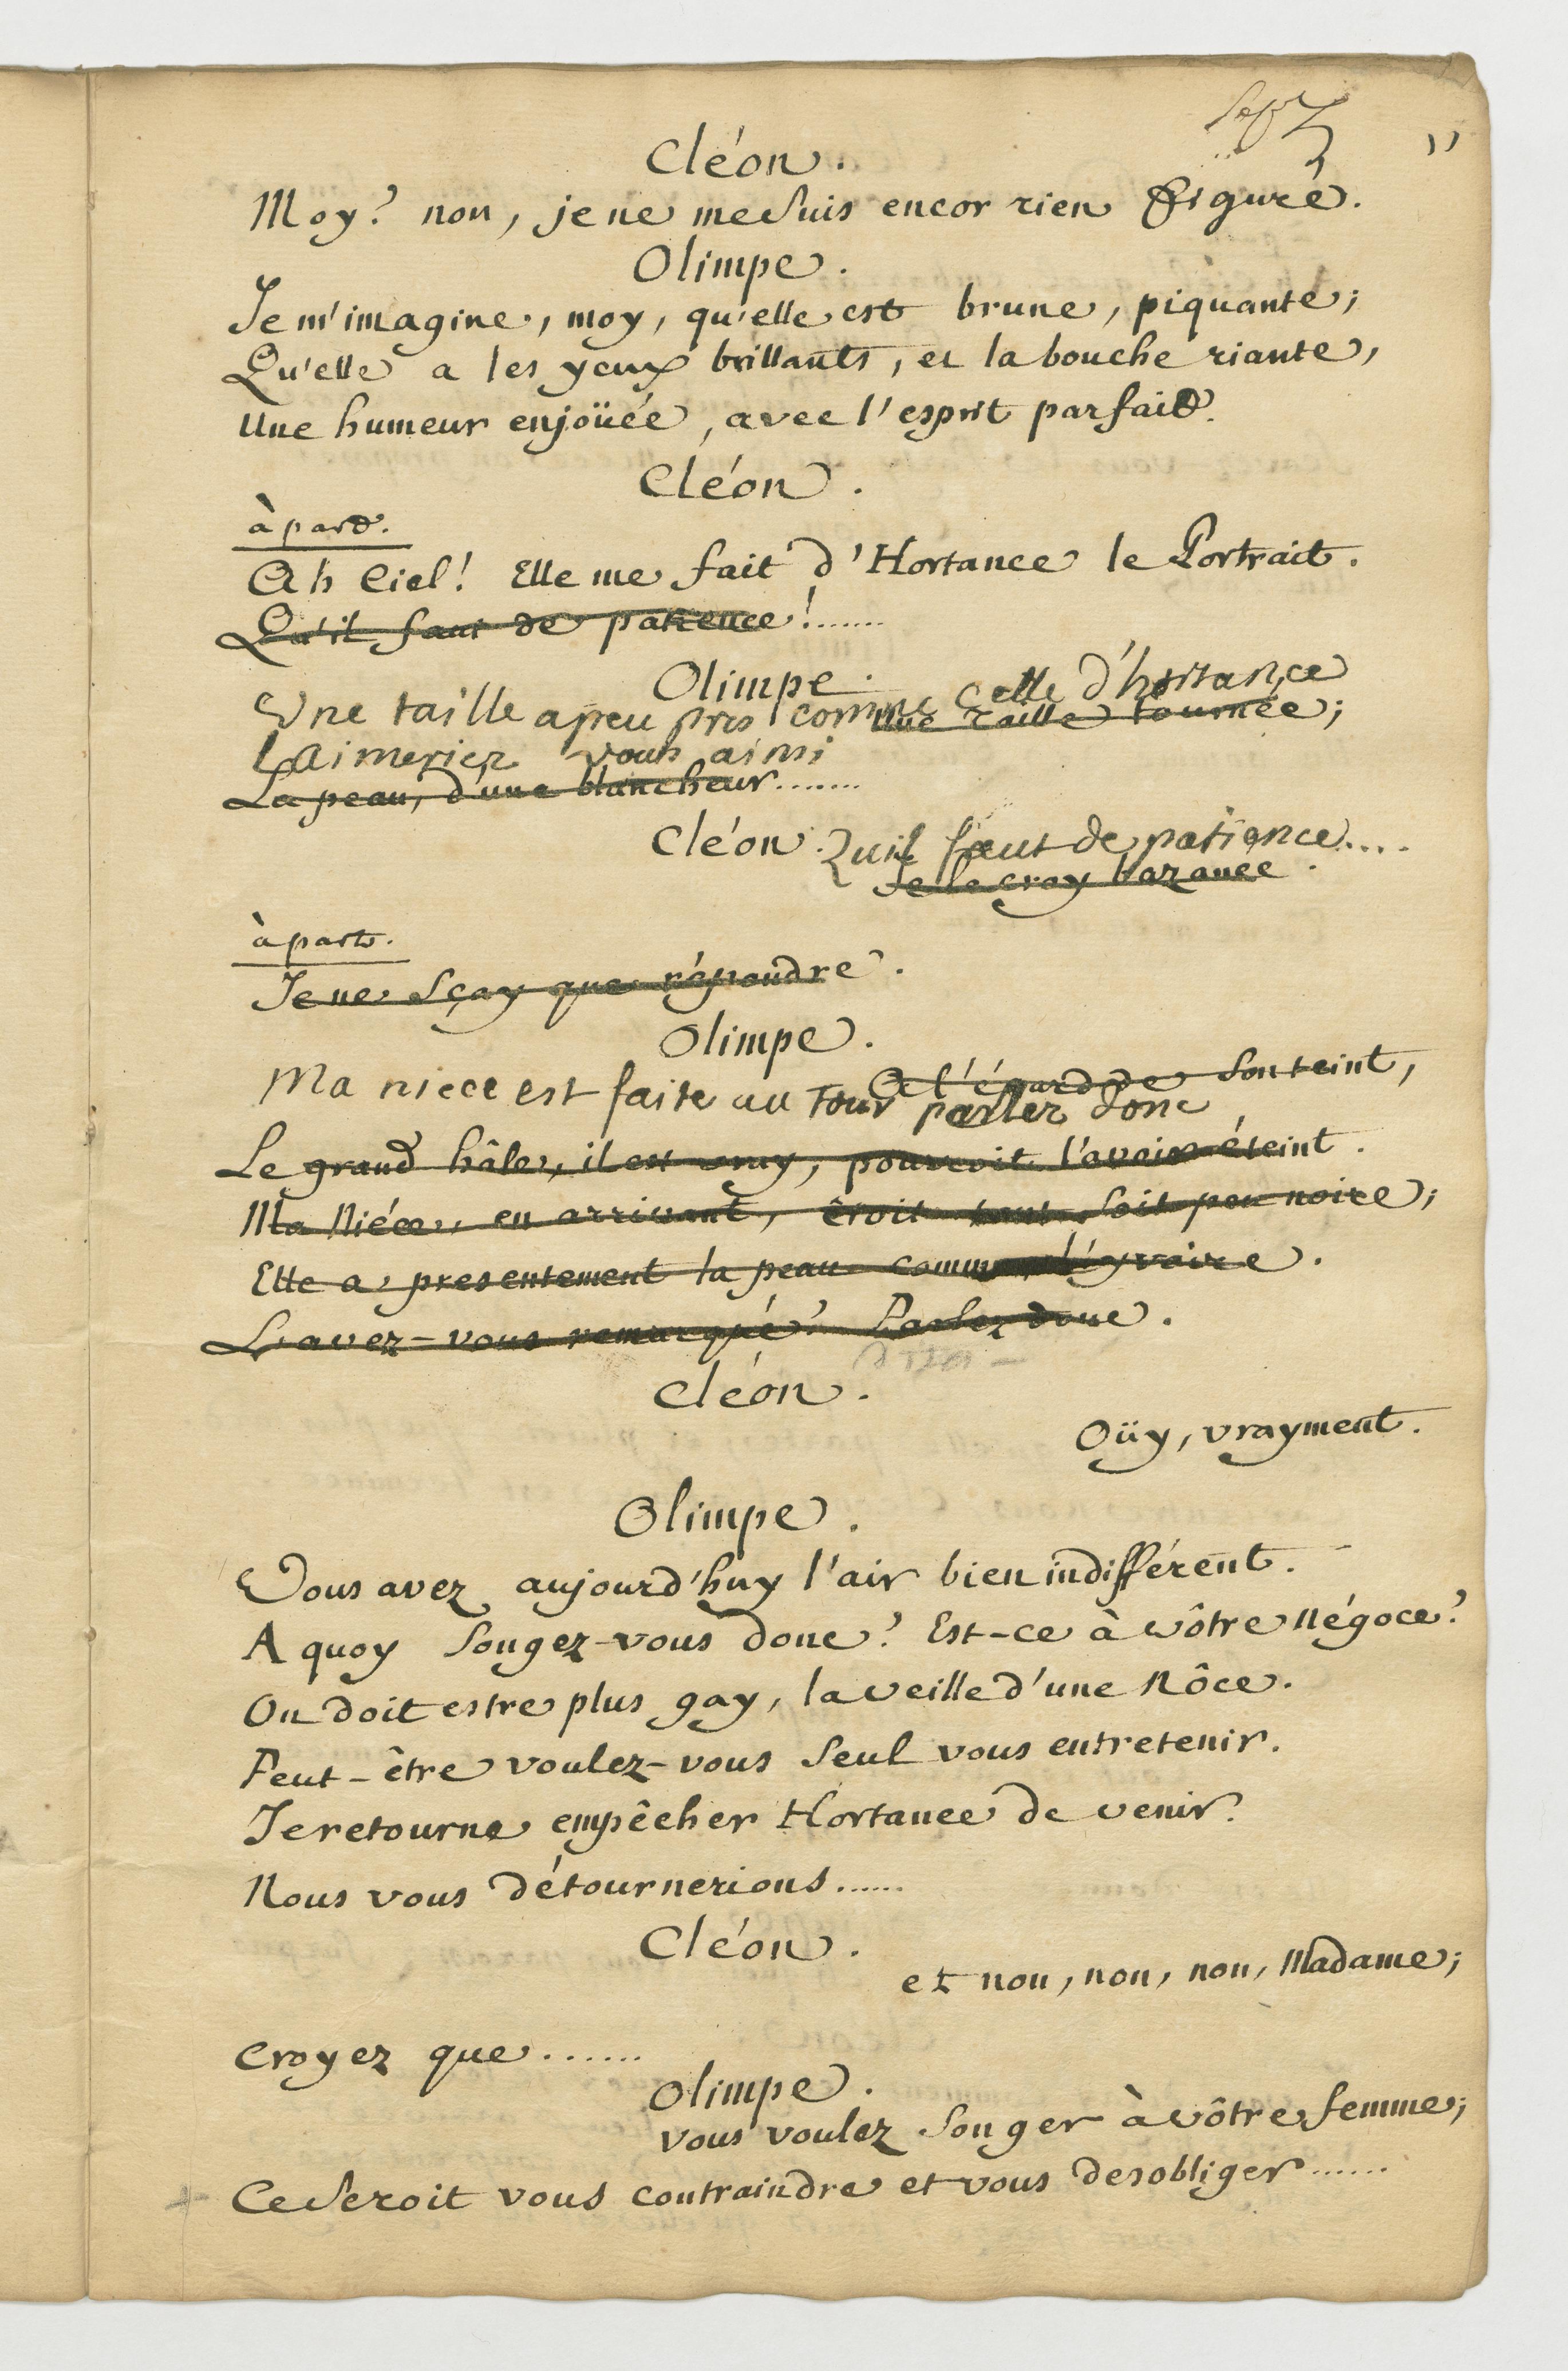 11
Cléon.
Moy? non, je ne me suis encor rien figuré.
Olimpe.
Je m'imagine, moy, qu'elle est brune, piquante;
Qu'elle a les yeux brillants, et la bouche riante,
Une humeur enjoüée, avec l'esprit parfait.
Cléon.
à part.
Ah Ciel! Elle me fait d'Hortance le Portrait.
Qu'il faut de patience!......
Olimpe.
Une taille apeu pres comme celle d'hortance
Une taille tournée;
Laimeriez vous ainsi
La peau, d'une blancheur.......
Cléon. Quil faut de patience....
Je la croy bazanée.
à part.
Je ne sçay que répondre.
Olimpe.
A l'égard de son teint,
Ma niece est faite au Tour parlez donc
Le grand hâle, il est vray, pouvoit l'avoir éteint.
Ma Niéce, en arrivant, étoit tant soit peu noire;
Elle a presentement la peau comme l'yvoire.
L'avez-vous remarqué? Parlez donc.
Cléon.
Oüy, vrayment.
Olimpe.
Vous avez aujourd'huy l'air bien indifférent.
A quoy songez-vous donc? Est-ce à vôtre négoce?
On doit estre plus gay, la veille d'une Nôce.
Peut-être voulez-vous seul vous entretenir.
Je retourne empêcher Hortance de venir.
Nous vous détournerions......
Cléon.
et non, non, non, Madame;
Croyez que......
Olimpe.
vous voulez songer à vôtre femme;
Ce seroit vous contraindre et vous desobliger......